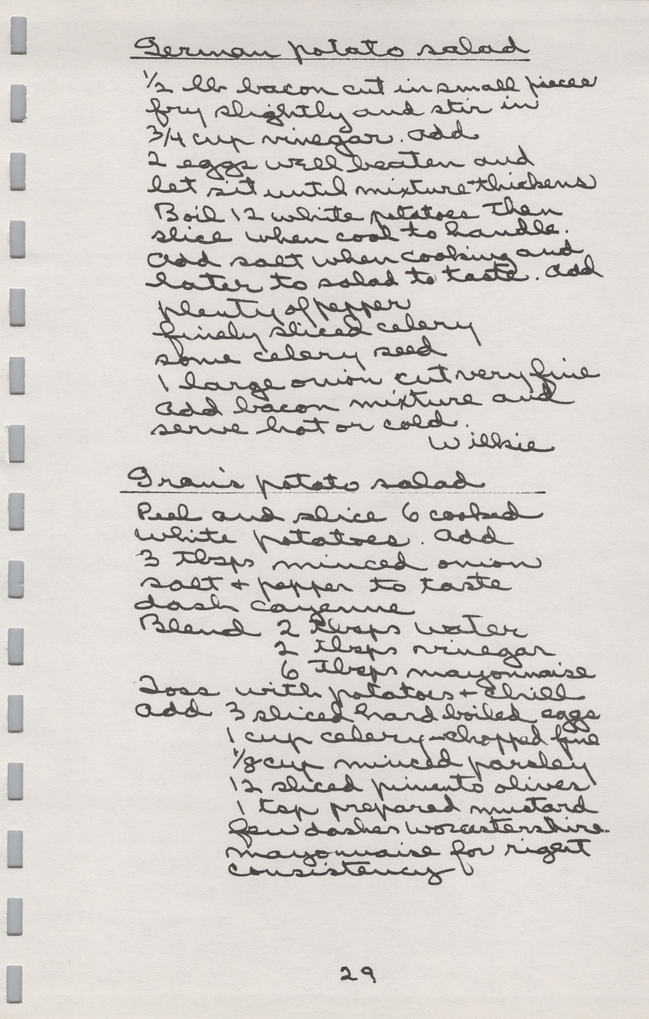 German potato salad
1/2 lb bacon cut in small pieces
fry slightly and stir in
3/4 cup vinegar. add
2 eggs well beaten and
let sit until mixture thickens
Boil 12 white potatoes then
slice when cool to handle.
Add salt when cooking and
later to salad to taste. Add
plenty of pepper
finely sliced celery
some celery seed
1 large onion cut very fine
add bacon mixture and
serve hot or cold.
Willsie
Gran's potato salad
Peel and slice 6 cooked
white potatoes. Add
3 tbsps minced onion
salt + pepper to taste
dash cayenne
Blend 2 tbsps water
2 tbsps vinegar
6 tbsps mayonnaise
Toss with potatoes + chill
Add 3 sliced hard boiled eggs
1 cup celery-chopped fine
1/8 cup minced parsley
12 sliced pimento olives
1 tsp prepared mustard
few dashes worcestershire
mayonnaise for right
consistency
29